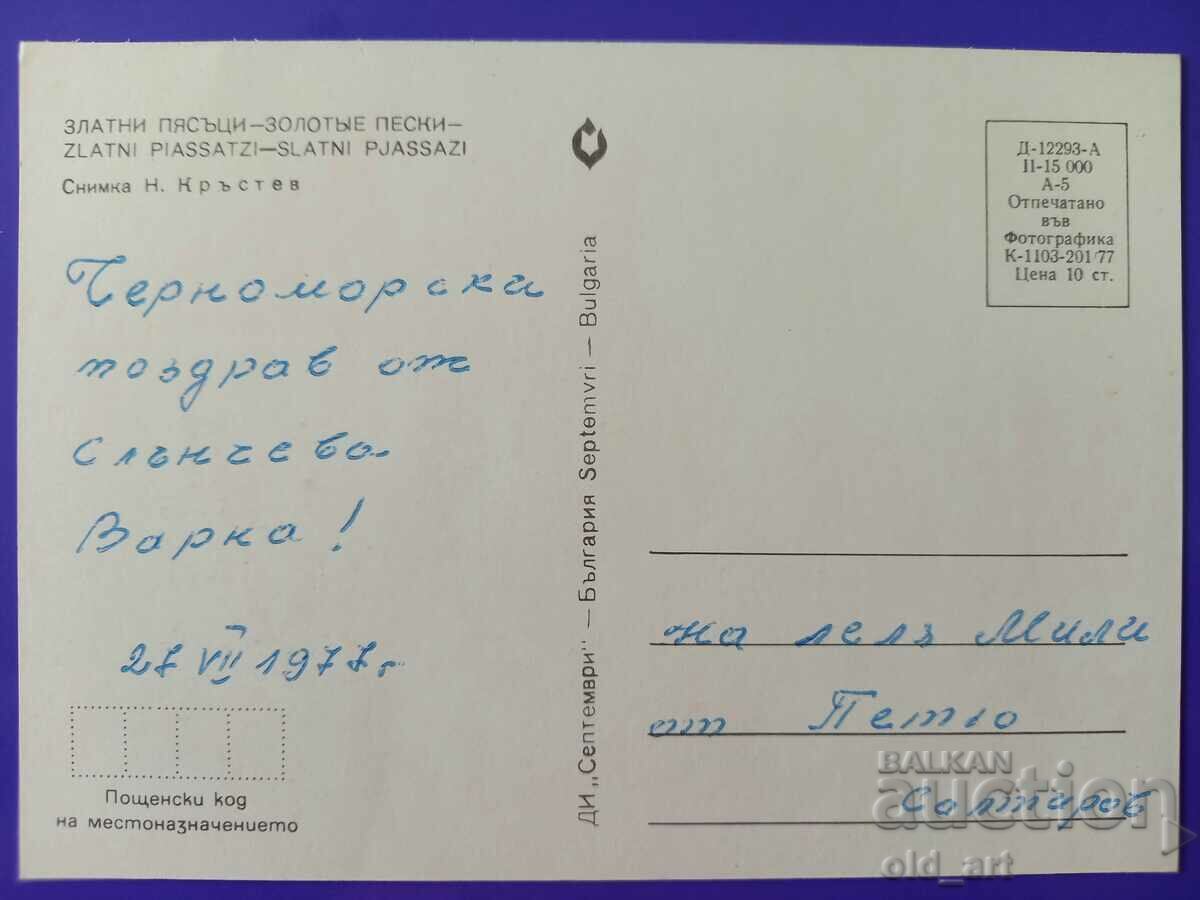 ЗЛАТНИ ПЯСЪЦИ—ЗОЛОТЫЕ ПЕСКИ—
ZLATNI PIASSATZI—SLATNI PJASSAZI
Снимка Н. Кръстев
Черноморски
поздрав от
слънчева
Варна!
27 VII 1977г.
Пощенски код
на местоназначението
ДИ „Септември" — България Septemvri — Bulgaria
Д-12293-А
II-15 000
А-5
Отпечатано
във
Фотографика
К-1103-201/77
Цена 10 ст.
на леля Мили
от Петю
Салтиров
BALKAN
auction
old_art